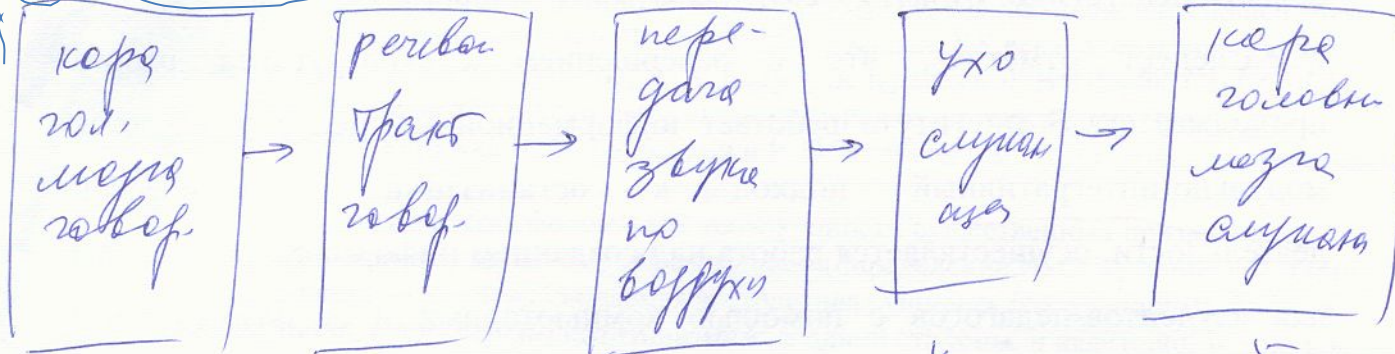 кора
гол.
мозга
говор.
речевой
тракт
говор.
пере-
дача
звука
по
воздуху
ухо
слушаю
щего
кора
головн
мозга
слушаю